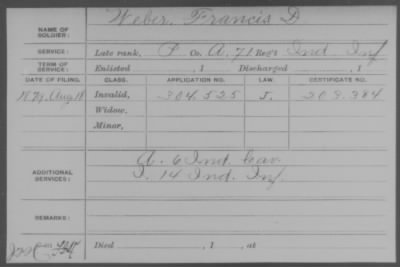 Weber, Francis D
NAME OF SOLDIER:
SERVICE: Late rank, P Co. A, 71 Reg't Ind. Inf
TERM OF SERVICE: Enlisted , 1 Discharged , 1
DATE OF FILING. CLASS. APPLICATION NO. LAW. CERTIFICATE NO.
1879, Aug 18 Invalid, 304.525 J. 209.384
Widow,
Minor,
ADDITIONAL SERVICES: A. 6 Ind. Cav.
14 Ind. Inf.
REMARKS:
Died , 1 , at